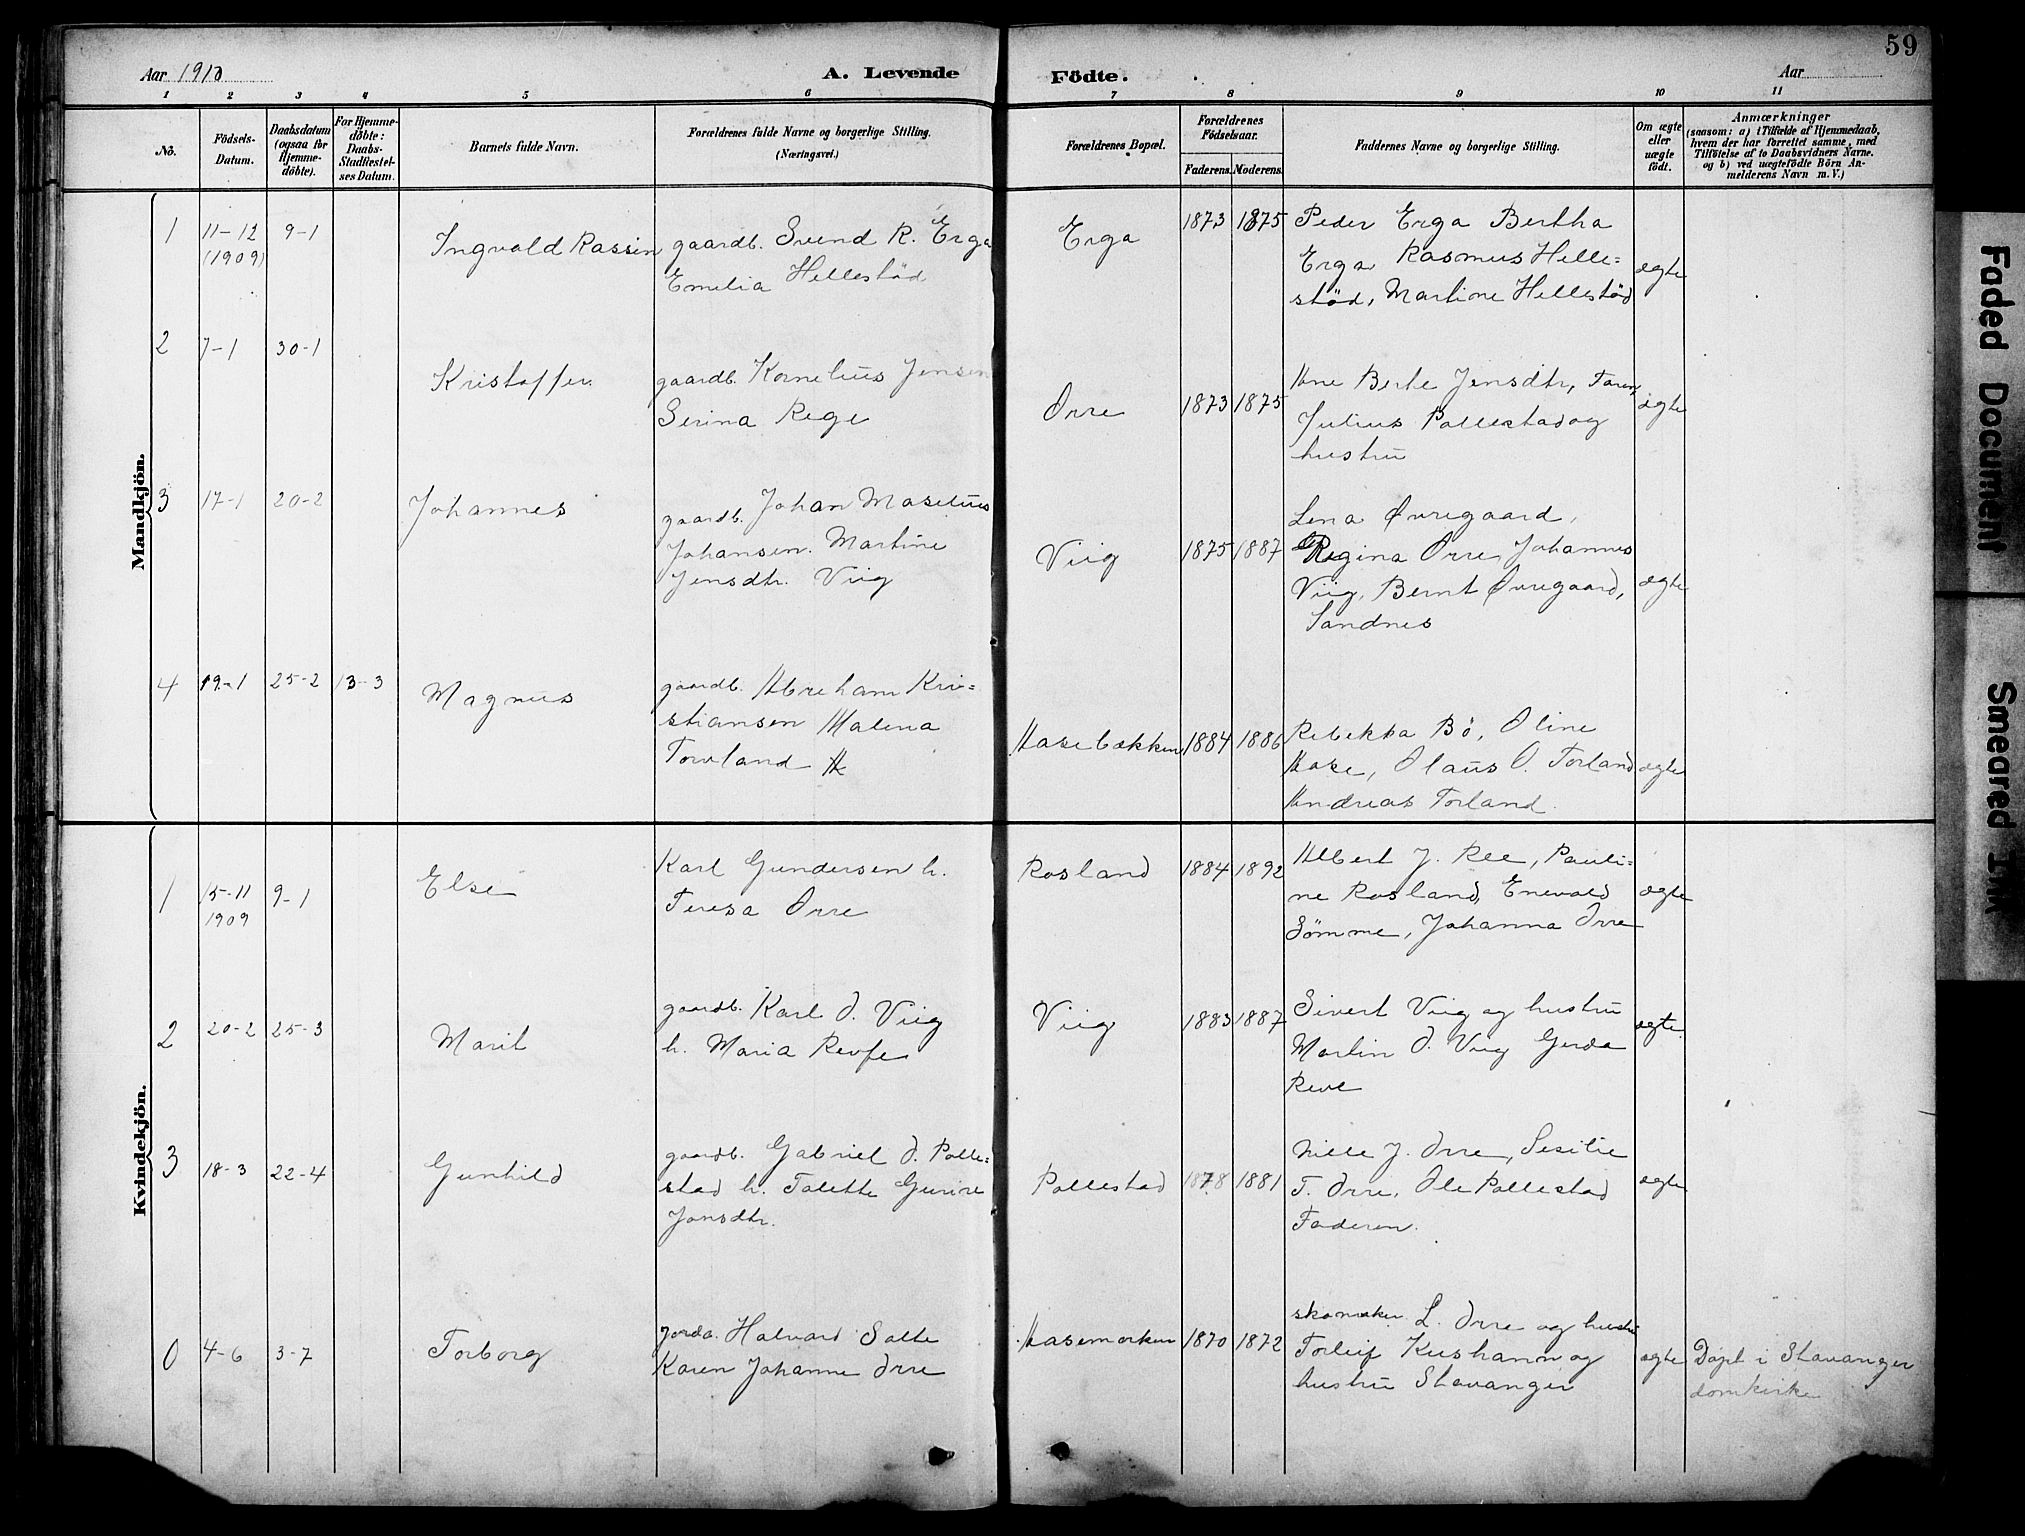 59
Aar 1910
A. Levende Födte.
Aar
1 2 3 4 5 6 7 8 9 10 11
No.
Födsels-Datum.
Daabsdatum (ogsaa for Hjemme-döbte).
For Hjemme-döbte: Daabs-Stadfæstel-ses Datum.
Barnets fulde Navn.
Forældrenes fulde Navne og borgerlige Stilling.
(Næringsvei.)
Forældrenes Bopæl.
Forældrenes Födselsaar.
Faderens. Moderens.
Faddernes Navne og borgerlige Stilling.
Om ægte eller uægte födt.
Anmærkninger
(saasom: a) i Tilfælde af Hjemmedaab,
hvem der har forrettet samme, med
Tilföielse af to Daabsvidners Navne.
og b) ved uægtefödte Börn An-
melderens Navn m. V.)
Mandkjön.
1 11-12 (1909) 9-1
Ingvald Rassin
gaardb. Svend R. Erga
Emelia Hellestöd
Erga
1873 1875
Peder Erga Bertha
Erga Rasmus Helle=
stöd, Martine Hellestöd
ægte
2 7-1 30-1
Kristoffer
gaardb. Kornelius Jensen
Serina Rege
Orre
1873 1875
Ane Berte Jensdtr, Faren,
Julius Pollestad og
hustru
ægte
3 17-1 20-2
Johannes
gaardb. Johan Maselius
Johansen. Martine
Jensdtr. Viig
Viig
1875 1887
Lena Øvregaard,
Regina Orre, Johannes
Viig, Bernt Øvregaard,
Sandnes
ægte
4 19-1 25-2 13-3
Magnus
gaardb. Abreham Kri=
stiansen Malena
Torland
Hasebækken
1884 1886
Rebekka Bö, Oline
Hase, Olaus O. Torland
Andreas Torland.
ægte
Kvindekjön.
1 15-11 1909 9-1
Else
Karl Gundersen h.
Teresa Orre
Rosland
1884 1892
Albert J. Ree, Pauli=
ne Rosland, Enevald
Sömme, Johanna Orre
ægte
2 20-2 25-3
Marit
gaardb. Karl O. Viig
h. Maria Revfe
Viig
1883 1887
Sivert Viig og hustru
Martin O. Viig Gerda
Reve
ægte.
3 18-3 22-4
Gunhild
gaardb. Gabriel O. Polle=
stad h. Talette Gurine
Jonsdtr.
Pollestad
1878 1881
Nille J. Orre, Sesilie
T. Orre, Ole Pollestad
Faderen.
ægte
0 4-6 3-7
Torborg
jorda. Halvard Salte
Karen Johanne Orre
Hasemarken
1870 1872
skomaker L. Orre og hustru
Torleif Kushamn og
hustru Stavanger
ægte
Døpt i Stavanger
domkirke
Faded Document
Smeared Ink